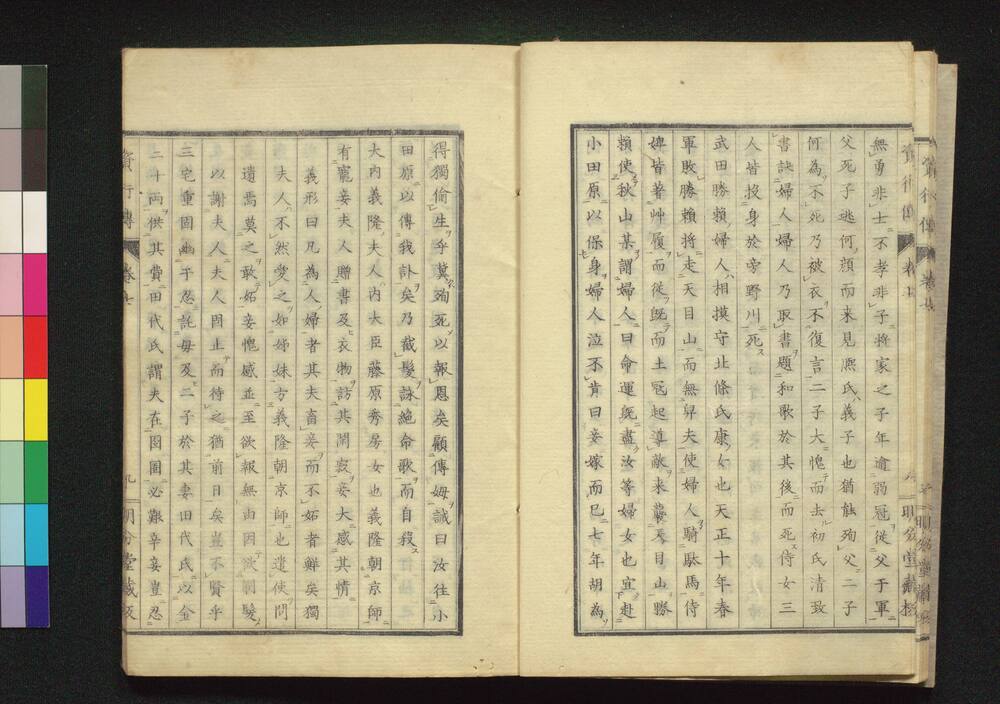 無勇非士不孝非子將家之子年逾弱冠從父于軍
父死子逃何顔而來見熈氏義子也猶能殉父二子
何為不死乃被衣不復言二子大愧而去初氏清致
書訣婦人婦人乃取書題和歌於其後而死侍女三
人皆投身於旁野川死
武田勝賴婦人相摸守北條氏康女也天正十年春
軍敗勝賴將走天目山而無舁夫使婦人騎駄馬侍
婢皆著艸履而従既而土冦起導敵来襲天目山勝
賴使秋山某謂婦人曰命運既盡汝等婦女也宜赴
小田原以保身婦人泣不肯曰妾嫁而已七年胡為
得獨偷生乎冀殉死以報恩矣顧傅姆誡曰汝往小
田原以傳我訃矣乃截髮詠絶命歌而自殺
大内義隆夫人内大臣藤原秀房女也義隆朝京師
有寵妾夫人贈書及衣物訪其閑寂妾大感其情
義形曰凡為人婦者其夫畜妾而不妬者鮮矣獨
夫人不然愛之如姊妹方義隆朝京師也遣使問
遺焉莫之敢妬妾愧感並至欲報無由因欲削髮
以謝夫人夫人固止而待之猶前日矣豈不賢乎
三宅重固幽于忍託母及二子於其妻田代氏以金
二十両供其費田代氏謂夫在囹圄必艱辛妾豈忍